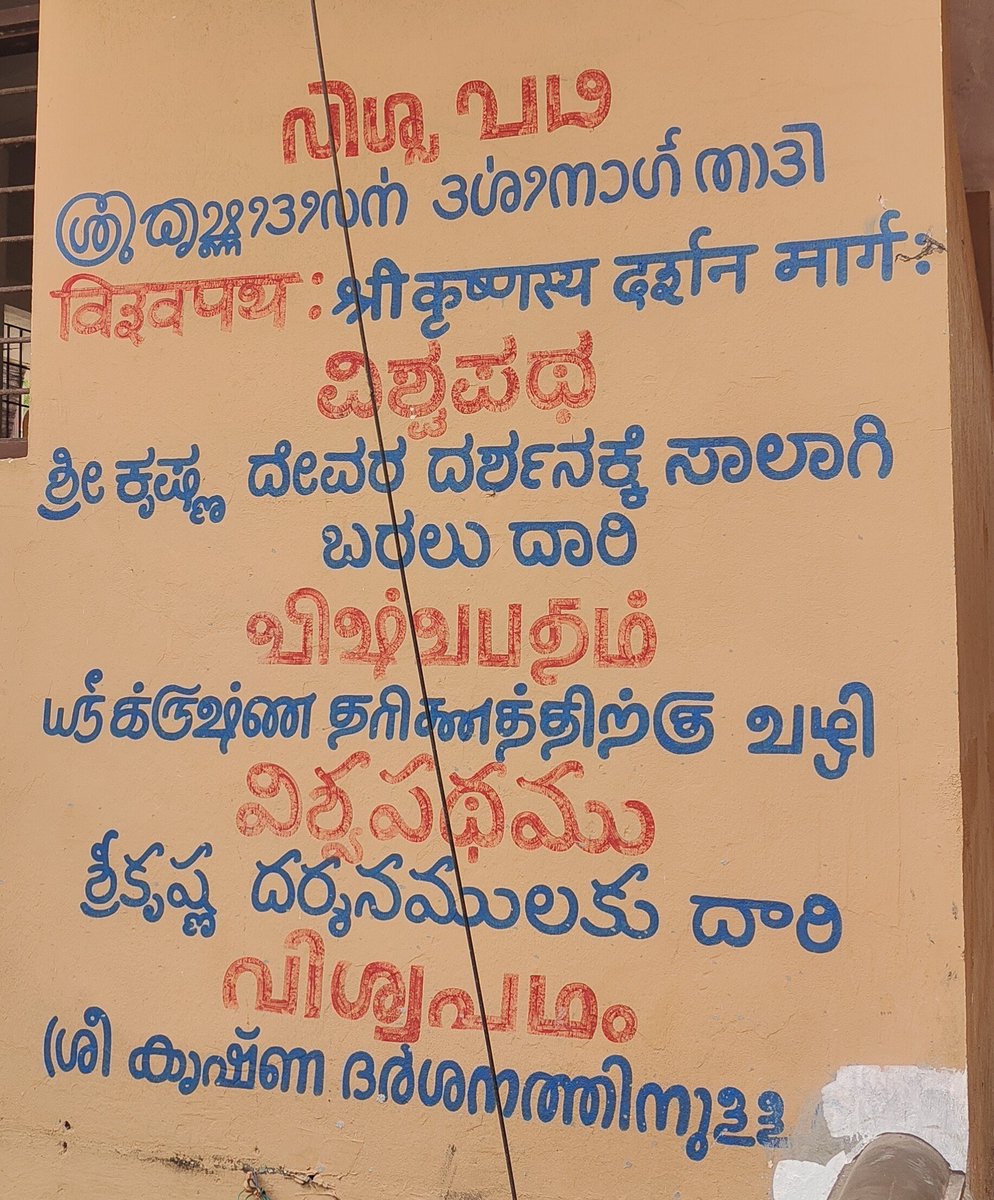 विश्वपथ : श्रीकृष्णस्य दर्शन मार्ग :
ವಿಶ್ವಪಥ
ಶ್ರೀ ಕೃಷ್ಣ ದೇವರ ದರ್ಶನಕ್ಕೆ ಸಾಲಾಗಿ
ಬರಲು ದಾರಿ
விஷ்வபதம்
ஸ்ரீ க்ருஷ்ண தரிணத்திற்கு வழி
విశ్వపథము
శ్రీకృష్ణ దర్శనములకు దారి
വിശ്വപഥം
ശ്രീ കൃഷ്ണ ദർശനത്തിനുള്ള